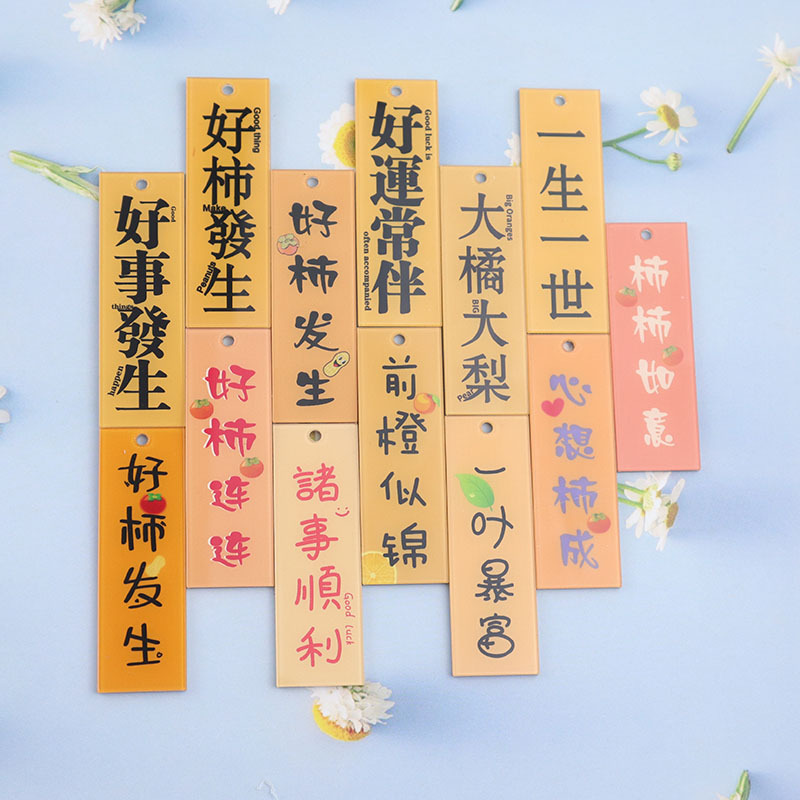 好事發生
Good
things
happen
好柿發生
Good thing
Make
Peanuts
好柿发生
好運常伴
Good luck is
often accompanied
大橘大梨
Big Oranges
BIG
一生一世
柿柿如意
好柿发生
好柿连连
諸事順利
Good luck
前橙似锦
一叶暴富
心想柿成